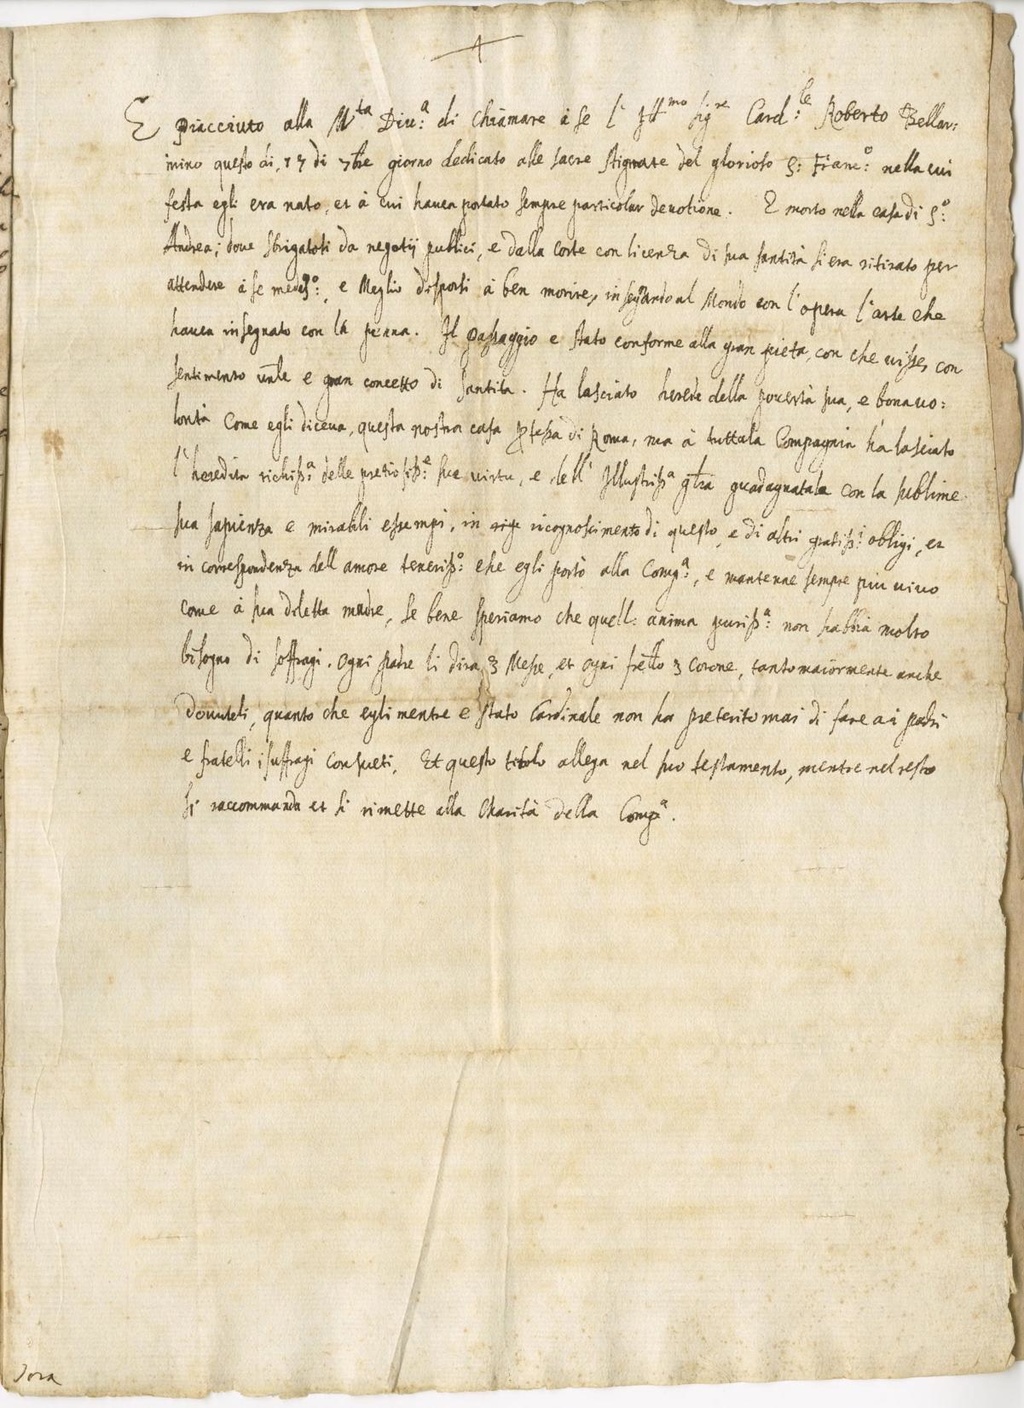 +
E piacciuto alla M.ta Diu:a di chiamare à se l' Ill.mo sig.re Card:le Roberto Bellar:
mino questo di, 17 di 7bre giorno dedicato alle sacre stigmate del glorioso S: Franc:o nella cui
festa egli era nato, et à cui hauea portato sempre particolar deuotione. E morto nella casa di S:o
Andrea; doue sbrigatosi da negotij publici, e dalla corte con licenza di sua santità si era ritirato per
attendere à se medes:o, e Meglio disporsi à ben morire, insegnando al Mondo con l'opera l'arte che
hauea insegnato con la penna. Il passaggio e stato conforme alla gran pieta, con che uisse, con
sentimento unle e gran concetto di santita. Ha lasciato herede della pouertà sua, e bona uo:
lontà Come egli diceua, questa nostra casa pfessa di Roma, ma à tutta la Compagnia ha lasciato
l'heredita richiss:a delle pretiosiss:e sue uirtu, e dell' Illustriss:a gloria guadagnatale con la sublime
sua sapienza e mirabili essempi, in ricognoscimento di questo, e di altri gratiss:i obligi, et
in correspondenza dell amore teneriss:o che egli portò alla Comp:a, e mantenne sempre piu uiuo
come à sua diletta madre, se bene speriamo che quell: anima puriss:a non habbia molto
bisogno di soffragi. Ogni padre li dira 3 Messe, et ogni frello 3 corone, tanto maiormente anche
douuteli, quanto che egli mentre e stato Cardinale non ha preterito mai di fare a i padri
e fratelli i suffragi consueti. Et questo titolo allega nel suo testamento, mentre nel resto
si raccommanda et si rimette alla Charità della Comp:a.